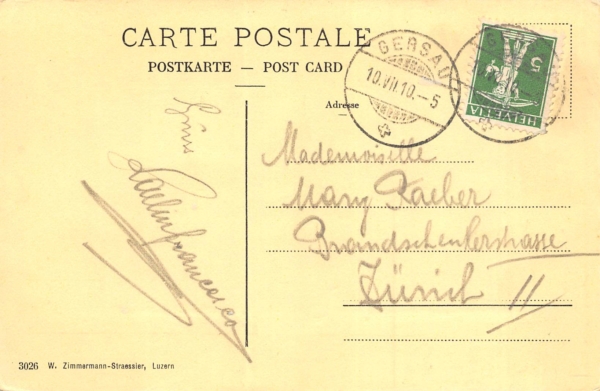 CARTE POSTALE
POSTKARTE — POST CARD
Adresse
GERSAU
10.VII.10.–5
HELVETIA
5
Mademoiselle
Mary Raeber
Brandschenkestrasse
Zürich II
3026 W. Zimmermann-Straessler, Luzern